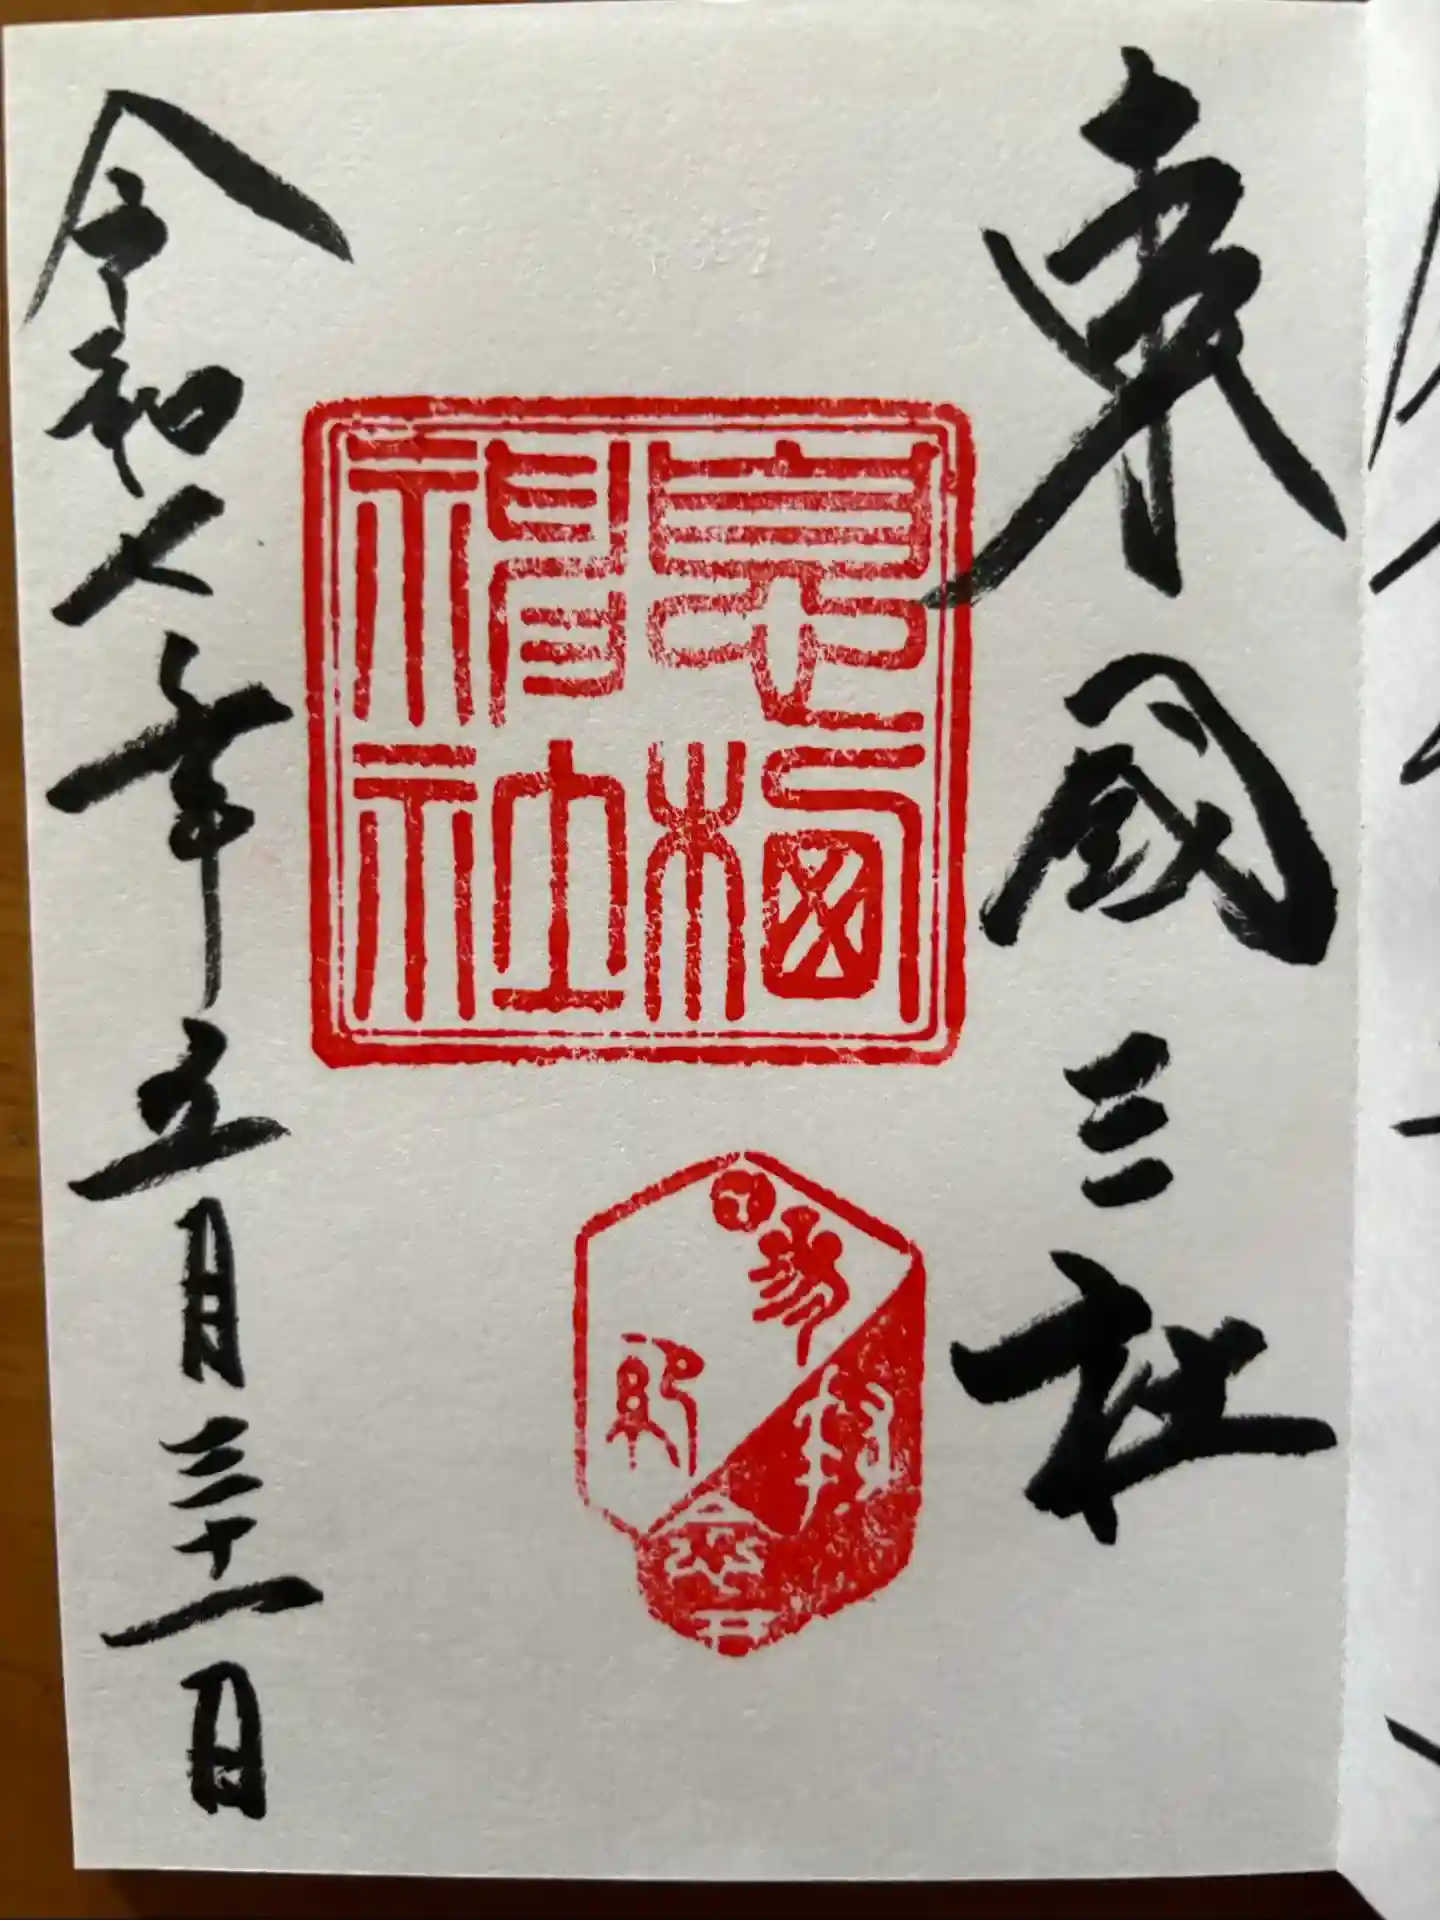 東國三社
息栖
神社
令和七年五月三十一日